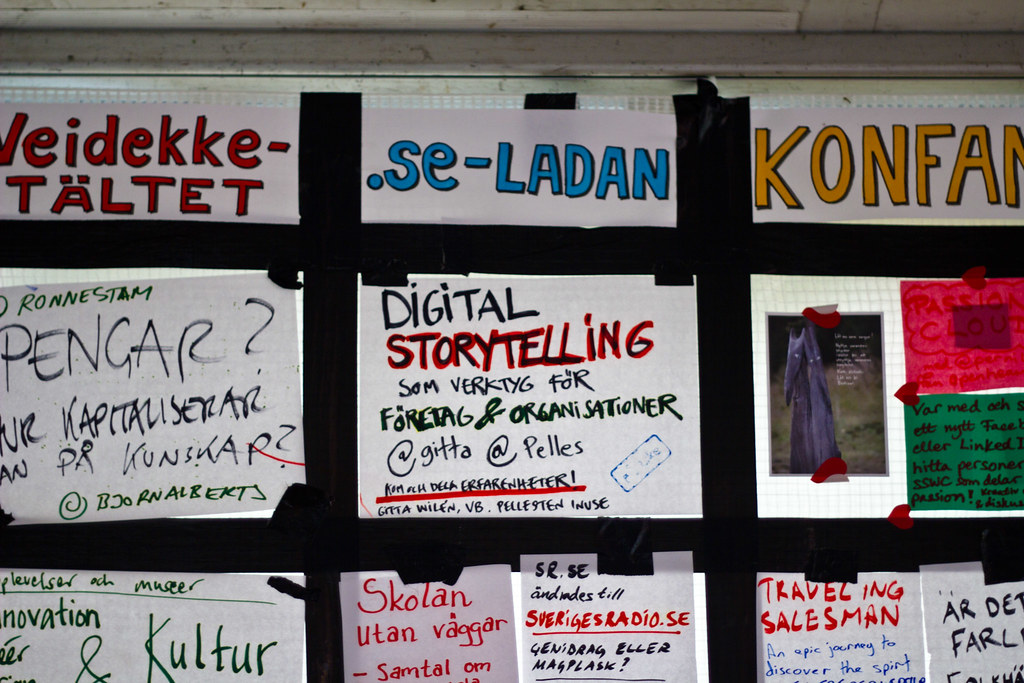 Veidekke-
TÄLTET
.se-LADAN
KONFAN
RÖNNESTAM
PENGAR?
HUR KAPITALISERAR
MAN PÅ KUNSKAP?
@ BJORNALBERTS
DIGITAL
STORYTELLING
SOM VERKTYG FÖR
FÖRETAG & ORGANISATIONER
@gitta @Pelles
KOM OCH DELA ERFARENHETER!
GITTA WILÉN, VB. PELLESTEN INUSE
PASSION
CLOUD
Var med och s
ett nytt Faceb
eller LinkedI
hitta personer
SSWC som delar
passion! Kreativ
& disku
plevelser och museer
nnovation
éer
& Kultur
Skolan
utan väggar
- Samtal om
SR.SE
ändrades till
SVERIGESRADIO.SE
GENIDRAG ELLER
MAGPLASK?
TRAVELING
SALESMAN
An epic journey to
discover the spirt
ÄR DET
FARLI
FOLKHÄ